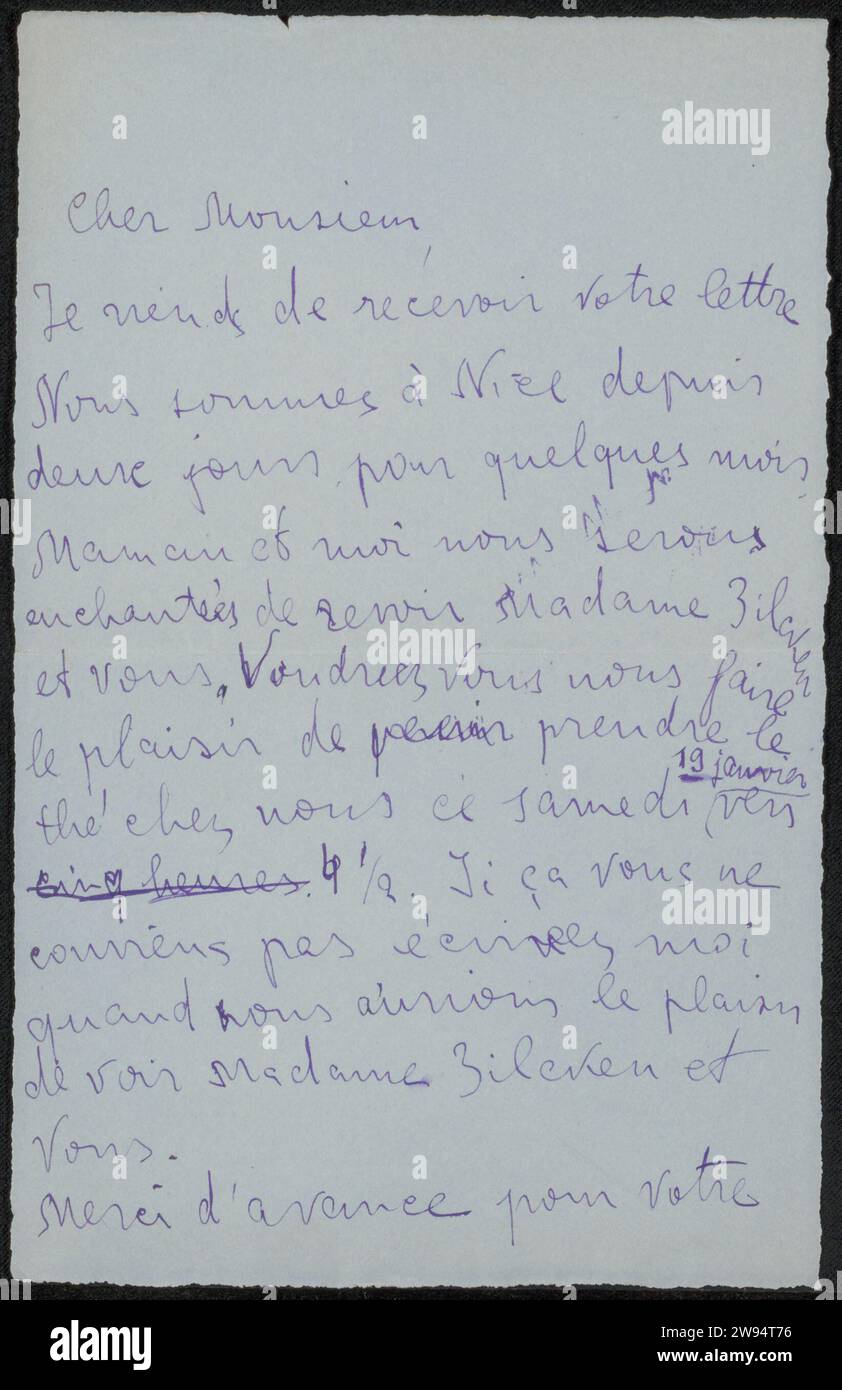 Cher Monsieur,
Je viens de recevoir votre lettre
Nous sommes à Nice depuis
deux jours pour quelques mois.
Maman et moi nous serons
enchantées de revoir Madame Zilcken
et vous. Voudriez vous nous faire
le plaisir de prendre le
thé chez nous ce samedi 19 janvier vers
cinq heures. 4 1/2. Si ça vous ne
conviens pas écrivez moi
quand nous aurions le plaisir
de voir Madame Zilcken et
Vous.
Merci d'avance pour votre
alamy
www.alamy.com
Image ID: 2W94T76